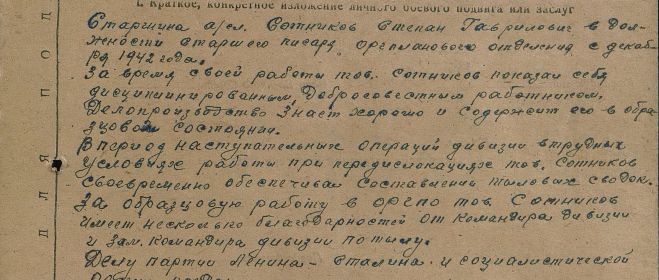 I. Краткое, конкретное изложение личного боевого подвига или заслуг
Старшина а/сл. Сотников Степан Гаврилович в дол-
жности старшего писаря оргпланового отделения с декаб-
ря 1942 года.
За время своей работы тов. Сотников показал себя
дисциплинированным, добросовестным работником.
Делопроизводство знает хорошо и содержит его в обра-
зцовом состоянии.
В период наступательных операций дивизии в трудных
условиях работы при передислокациях тов. Сотников
своевременно обеспечивал составлении тыловых сводок.
За образцовую работу в оргпо тов Сотников
имеет несколько благодарностей от командира дивизии
и зам. командира дивизии по тылу.
Делу партии Ленина - Сталина и социалистической
Д Л Я П О Д